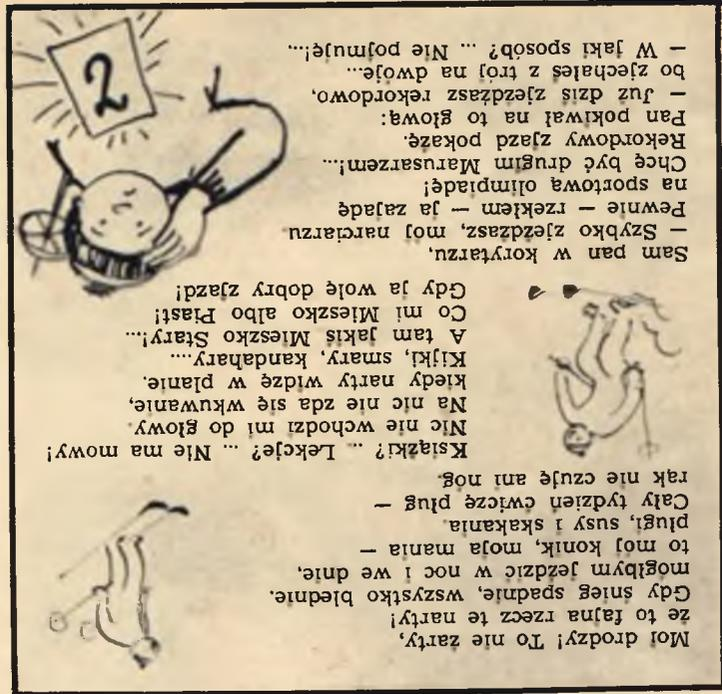 Moi drodzy! To nie żarty,
że to fajna rzecz te narty!
Gdy śnieg spadnie, wszystko blednie.
mógłbym jeździć w noc i we dnie,
to mój konik, moja mania —
pługi, susy i skakania
Cały tydzień ćwiczę pług —
rąk nie czuję ani nóg.
Książki? .. Lekcje? ... Nie ma mowy!
Nic nie wchodzi mi do głowy
Na nic nie zda się wkuwanie,
kiedy narty widzę w planie.
Kijki, smary, kandahary....
A tam jakiś Mieszko Stary!...
Co mi Mieszko albo Piast!
Gdy ja wolę dobry zjazd!
Sam pan w korytarzu,
— Szybko zjeżdżasz, mój narciarzu
Pewnie — rzekłem — ja zajadę
na sportową olimpiadę!
Chcę być drugim Marusarzem!...
Rekordowy zjazd pokażę.
Pan pokiwał na to głową:
— Już dziś zjeżdżasz rekordowo,
bo zjechałeś z trój na dwóje...
— W jaki sposób? ... Nie pojmuję!...
2